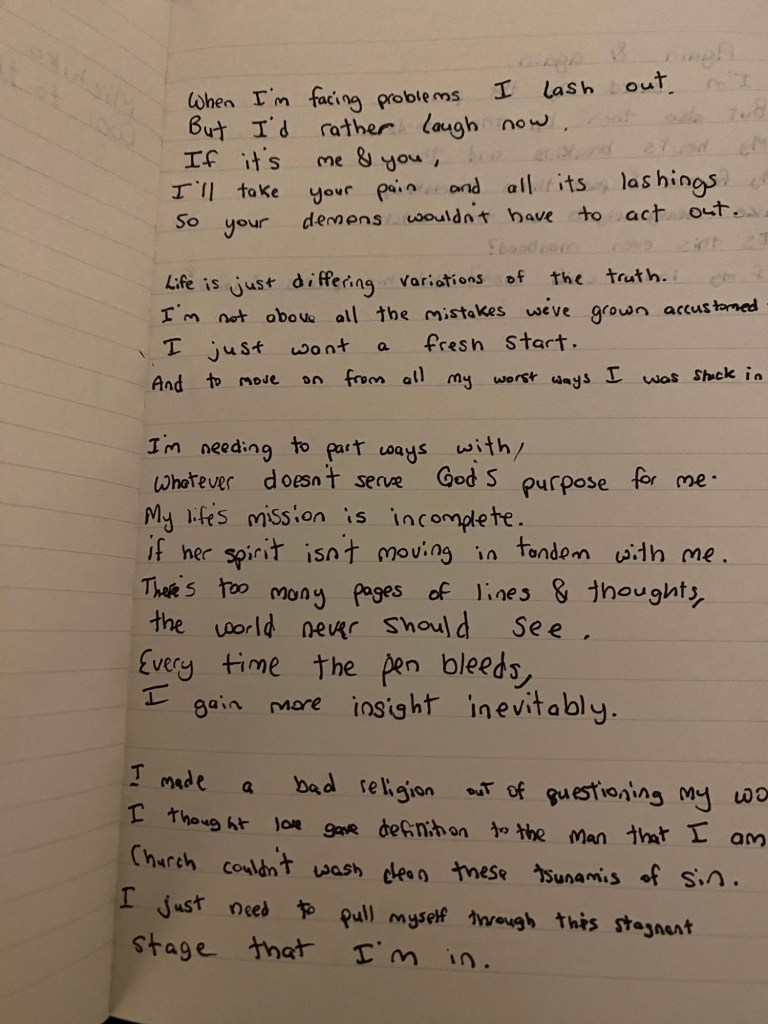 When I'm facing problems I lash out.
But I'd rather laugh now.
If it's me & you,
I'll take your pain and all its lashings
So your demons wouldn't have to act out.
Life is just differing variations of the truth.
I'm not above all the mistakes we've grown accustomed
I just want a fresh start.
And to move on from all my worst ways I was stuck in
I'm needing to part ways with,
Whatever doesn't serve God's purpose for me.
My life's mission is incomplete.
if her spirit isn't moving in tandem with me.
There's too many pages of lines & thoughts,
the world never should see.
Every time the pen bleeds,
I gain more insight inevitably.
I made a bad religion out of questioning my
I thought love gave definition to the man that I am
Church couldn't wash clean these tsunamis of sin.
I just need to pull myself through this stagnent
stage that I'm in.